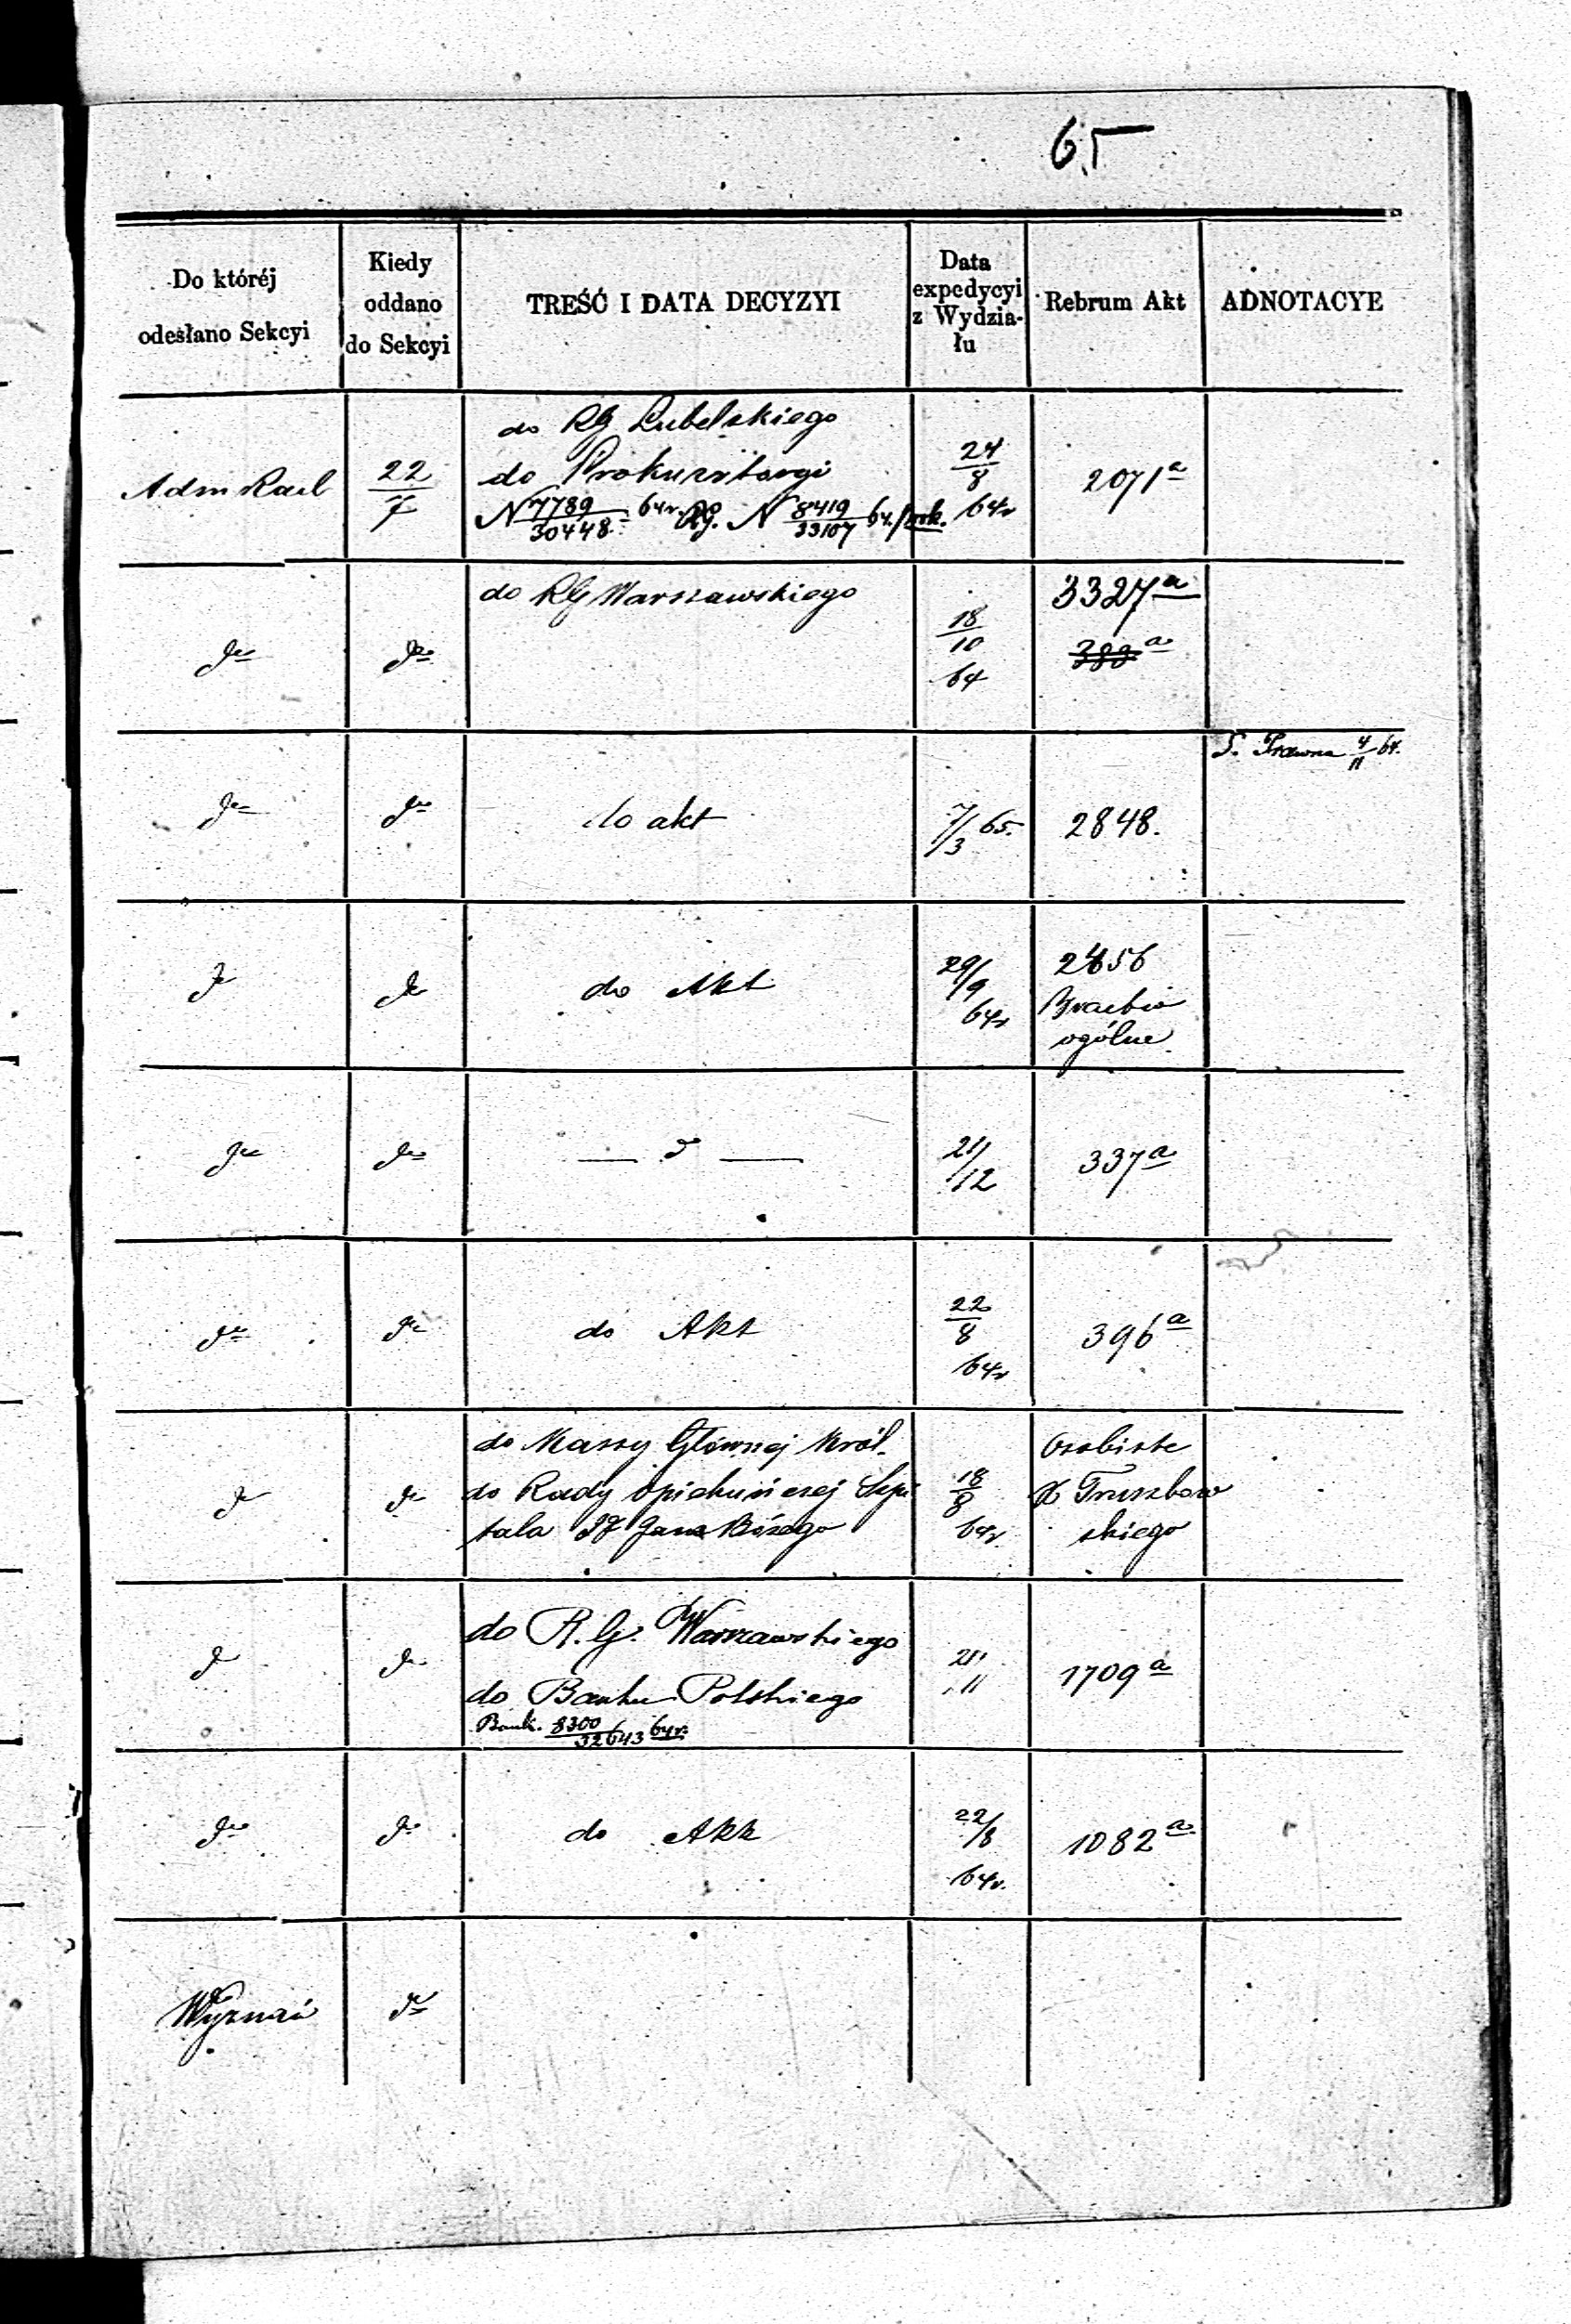 65
Do któréj
odesłano Sekcyi
Kiedy
oddano
do Sekcyi
TREŚĆ I DATA DECYZYI
Data
expedycyi
z Wydzia-
łu
Rebrum Akt
ADNOTACYE
Adm Rach
22/7
do RG Lubelskiego
do Prokuratoryi
N 7789/30448 64r. RG. N 8419/33107 64. prok.
24/8
64r
2071 a
do
do
do RG Warszawskiego
18/10
64
3327 a
383 a
do
do
do akt
7/3 65.
2848.
S. Prawna 4/11 64.
do
do
do Akt
29/9
64r
2456
ogólne
do
do
— d —
21/12
337 a
do
do
do Akt
22/8
64r
396 a
do
do
do Massy Głównej Król.
do Rady Opiekuńczej Szpi
tala Sg Jana Bożego
18/8
64r
Osobiste
X Truszkow
skiego
do
do
do R. G. Warszawskiego
do Banku Polskiego
Bank. 8300/32643 64r.
21/11
1709 a
do
do
do Akt
22/8
64r.
1082 a
Wyznań
do